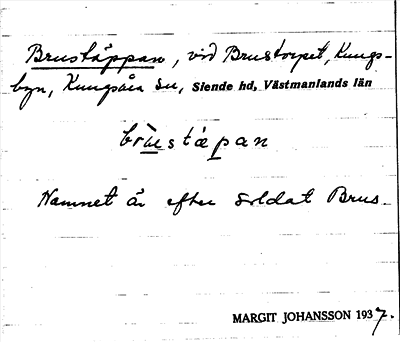 Brustäppan, vid Brustorpet, Kungs-
byn, Kungsåra sn, Siende hd, Västmanlands län
brùstäpan
Namnet är efter soldat Brus.
MARGIT JOHANSSON 1937.